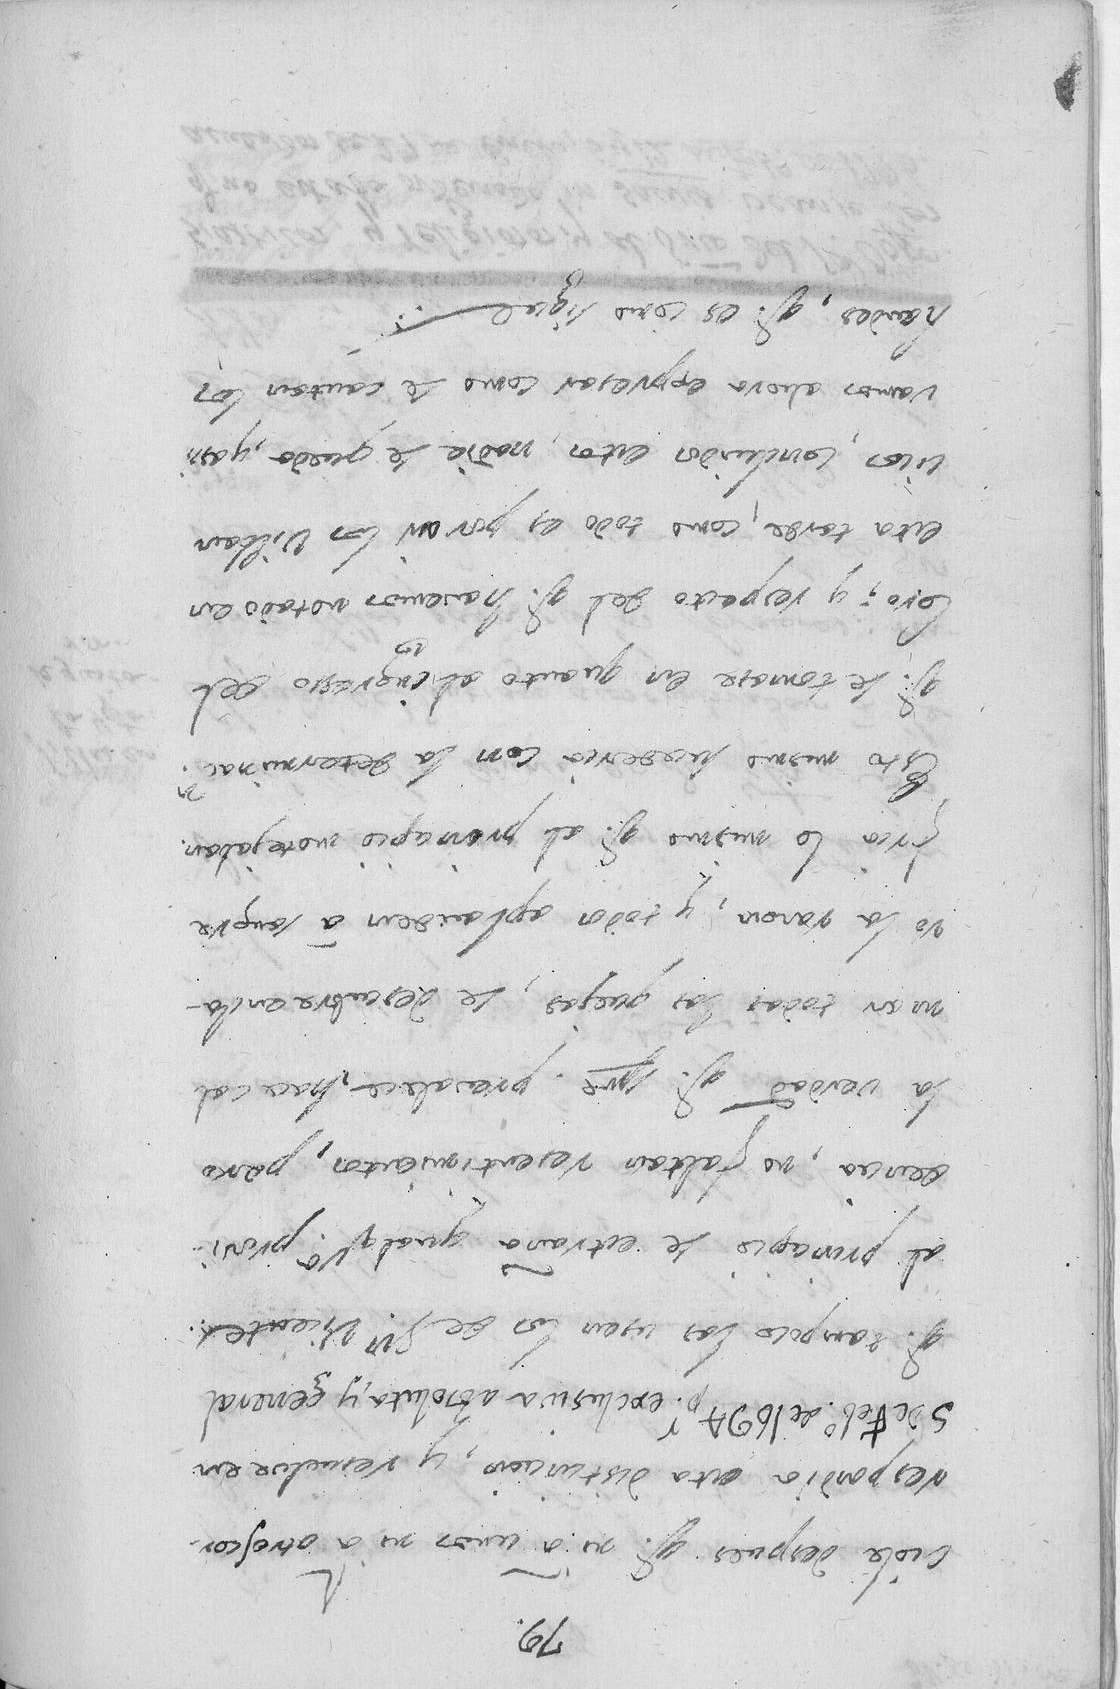 79.
ciole despues q.^e ni à unos ni à otros cor-
respondia esta distincion, y resuelve en
5 de Feb.^o de 1694 p.^r exclusiva absoluta, y general
q.^e tampoco los usen los de S.^n Vicente:
al principio se estraña qualq.^a provi-
dencia, no faltan resentimientos, pero
la verdad q.^e spre. prevalece, hace cal
mar todas las quejas, se descubre enlo-
no la razon, y todos aplauden à sangre
fria lo mismo q.^e al principio motejaban.
Esto mismo sucederia con la determinac.^n
q.^e se tomase en quanto al ingresso del
Coro; y respecto del q.^e hacemos notado en
esta tarde, como todo es por oir los Villan
cicos, concluidos estos, nadie se queda, y asi
vamos ahora expresar como se cantan los
Laudes, q.^e es como sigue: